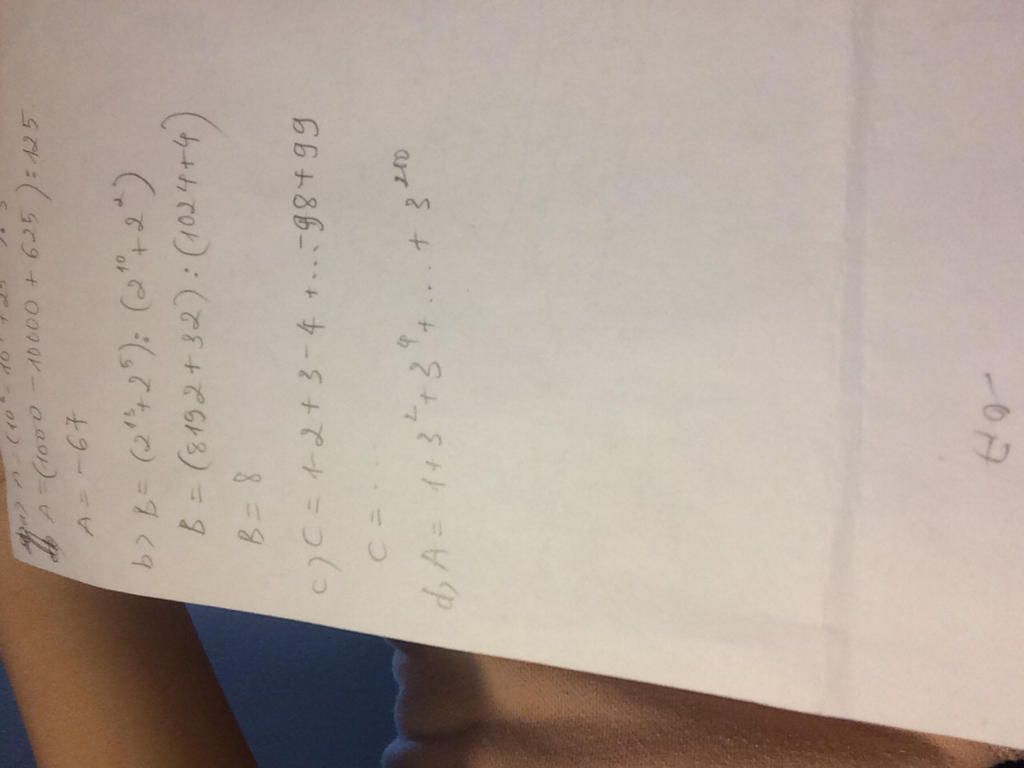 A = (1000 - 10000 + 625) : 125
A = - 67
b) B = (2¹³ + 2⁵) : (2¹⁰ + 2²)
B = (8192 + 32) : (1024 + 4)
B = 8
c) C = 1 - 2 + 3 - 4 + ... - 98 + 99
C = ...
d) A = 1 + 3² + 3⁴ + ... + 3²⁰⁰